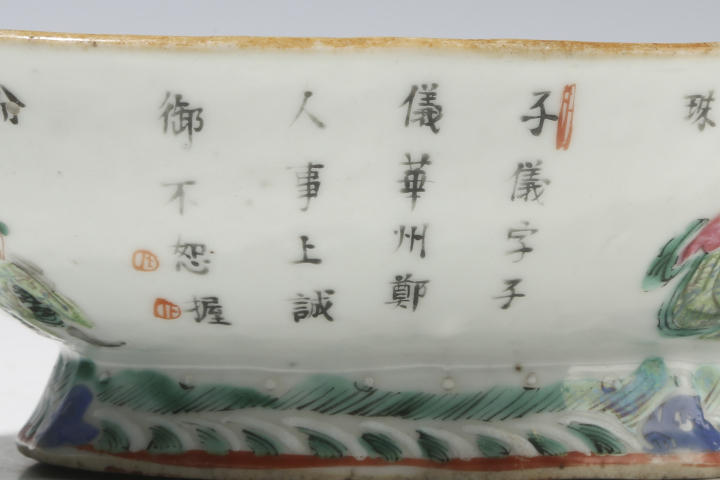 珠
子儀字子
儀華州鄭
人事上誠
御不恕握